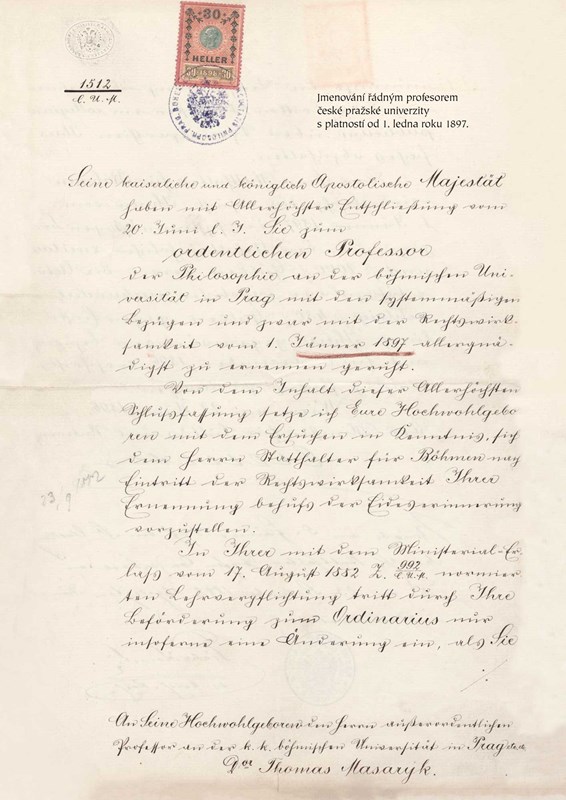 30
HELLER
1512
C. U. M.
Jmenování řádným profesorem
české pražské univerzity
s platností od 1. ledna roku 1897.
Seine kaiserliche und königlich Apostolische Majestät
haben mit Allerhöchster Entschließung vom
20. Juni l. J. Sie zum
ordentlichen Professor
der Philosophie an der böhmischen Uni-
versität in Prag mit den systemmäßigen
Bezügen und zwar mit der Rechtswirk-
samkeit vom 1. Jänner 1897 allergnä-
digst zu ernennen geruht.
Von dem Inhalt dieser Allerhöchsten
Schlussfassung setze ich Eure Hochwohlgebo
ren mit dem Ersuchen in Kenntnis, sich
dem Herrn Statthalter für Böhmen nach
Eintritt der Rechtswirksamkeit Ihrer
Ernennung behufs der Eideserinnerung
vorzustellen.
In Ihrer mit dem Ministerial-Er-
lass vom 17. August 1882 Z. 992 C. U. M. normier
ten Lehrverpflichtung tritt durch Ihre
Beförderung zum Ordinarius nur
insoferne eine Änderung ein, als Sie
./.
An Seine Hochwohlgeboren den Herrn außerordentlichen
Professor an der k. k. böhmischen Universität in Prag
Dor Thomas Masaryk.